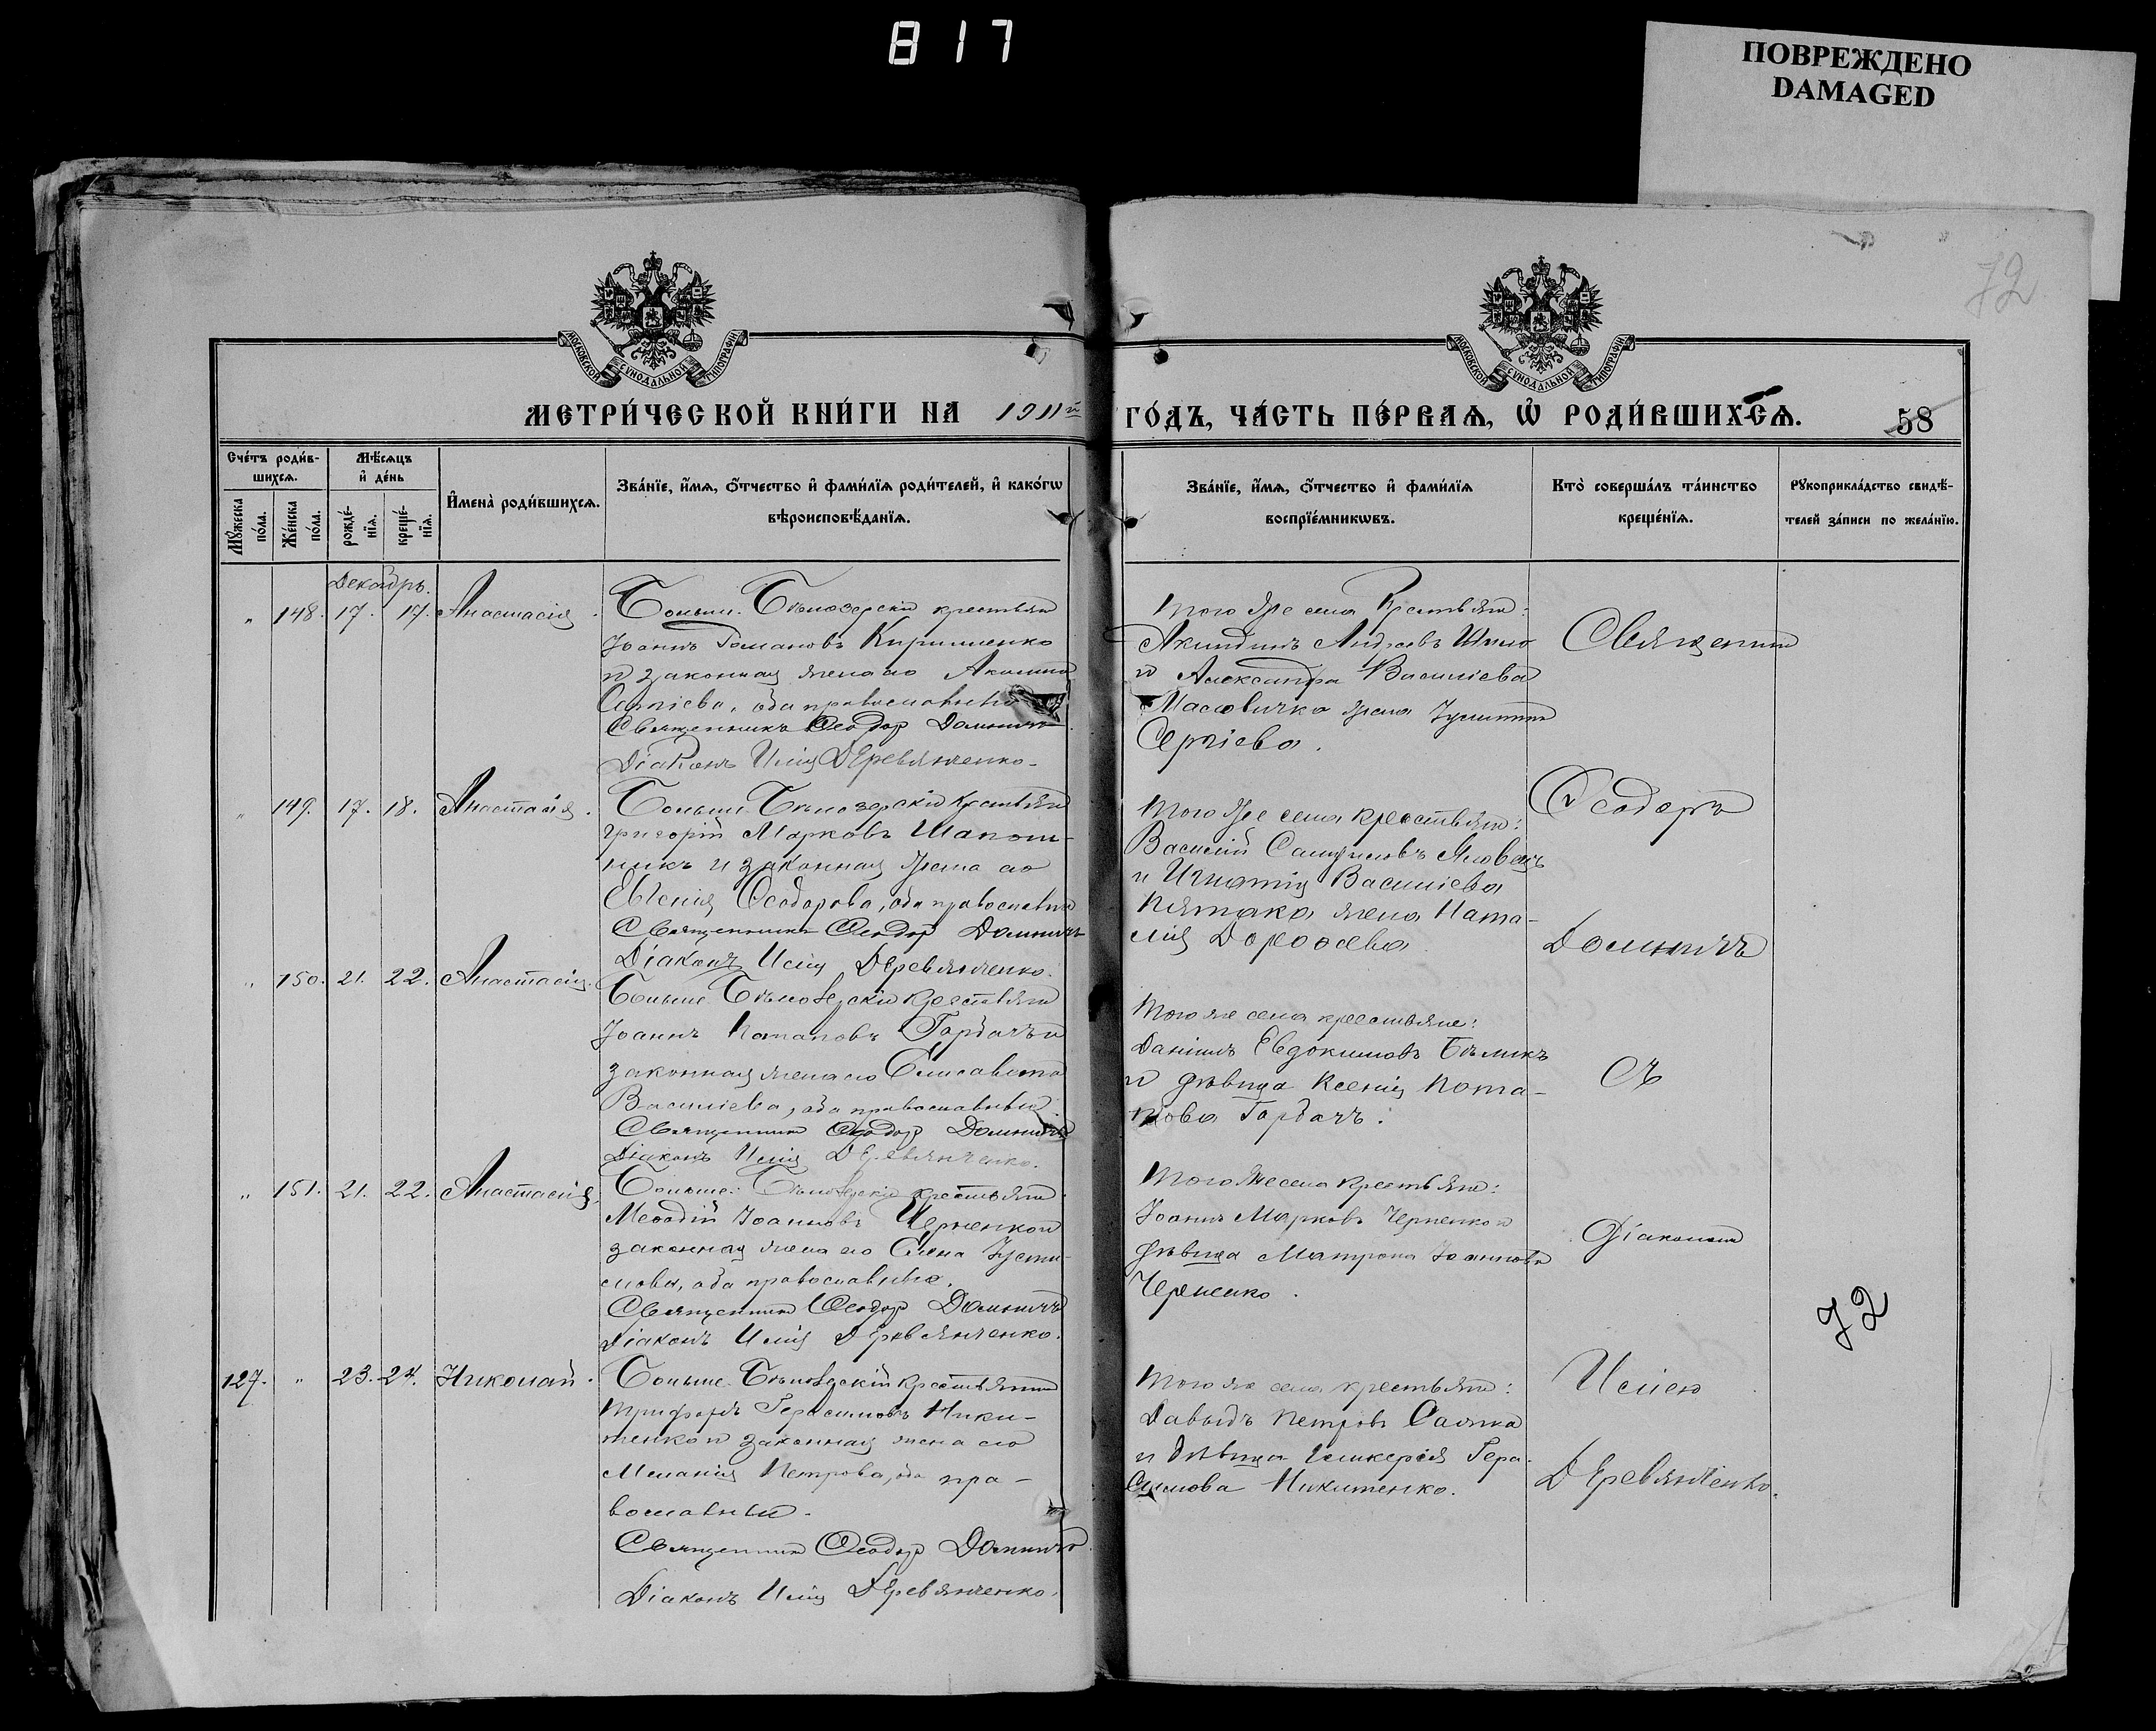 817
ПОВРЕЖДЕНО
DAMAGED
72
МОСКОВСКОЙ СѴНОДАЛЬНОЙ ТИПОГРАФІИ
МОСКОВСКОЙ СѴНОДАЛЬНОЙ ТИПОГРАФІИ
МЕТРИ́ЧЕСКОЙ КНИ́ГИ НА 1911й ГО́ДЪ, ЧА́СТЬ ПЕ́РВАѦ, Ѽ РОДИ́ВШИХСѦ. 58
Сче́тъ роди́в-
шихсѧ.
Мꙋ́жеска по́ла.
Же́нска по́ла.
Мѣ́сѧцъ
и҆ де́нь
рожде́-нїѧ.
креще́-нїѧ.
И҆мена̀ роди́вшихсѧ.
Зва́нїе, и҆́мѧ, ѻ҆́тчество и҆ фами́лїѧ роди́телей, и҆ како́гѡ
вѣроисповѣ́данїѧ.
Зва́нїе, и҆́мѧ, ѻ҆́тчество и҆ фами́лїѧ
воспрїе́мникѡвъ.
Кто̀ соверша́лъ та́инство
креще́нїѧ.
Рꙋкоприкла́дство свидѣ́-
телей за́писи по жела́нїю.
Декабрь.
" 148. 17. 17. Анастасія.
Больше-Бѣлозерскій крестьян
Іоаннъ Романовъ Кириленко
и законная жена его Акилина
Сергіева, оба православные
Священникъ Ѳеодор Домничъ
Діаконъ Илія Деревянченко.
Того же села крестьяне:
Акиндинъ Андреевъ Шило
и Александра Василіева
Масловичка жена Іулитта
Сергіева.
" 149. 17. 18. Анастасія.
Больше-Бѣлозерскій крестьян
Григорій Марковъ Шапош-
никъ и законная жена его
Евгенія Ѳеодорова, оба православные
Священникъ Ѳеодор Домничъ
Діаконъ Илія Деревянченко.
Того же села крестьяне:
Василій Яловецъ
и Игнатія Василіева
Пятака жена Ната-
лія Дороѳеева
" 150. 21. 22. Анастасія.
Больше-Бѣлозерскій крестьян
Іоаннъ Потаповъ Горбачъ и
законная жена его Елисавета
Василіева, оба православные
Священник Ѳеодор Домничъ
Діаконъ Илія Деревянченко.
Того же села крестьяне:
Даніилъ Евдокимовъ Бѣликъ
и дѣвица Ксенія Пота-
пова Горбачъ.
" 151. 21. 22. Анастасія.
Больше-Бѣлозерскій крестьян
Меѳодій Іоанновъ Черненко и
законная жена его Елена Усти-
нова, оба православные.
Священник Ѳеодор Домничъ
Діаконъ Илія Деревянченко.
Того же села крестьяне:
Іоаннъ Марковъ Черненко и
дѣвица Матрона Іоаннова
Черненко.
127. " 23. 24. Николай.
Больше-Бѣлозерскій крестьянин
Трифонъ Герасимовъ Ники-
тенко и законная жена его
Меланія Петрова, оба пра-
вославные.
Священник Ѳеодор Домничъ
Діаконъ Илія Деревянченко.
Того же села крестьяне:
Давыдъ Петровъ
и дѣвица Гликерія Гера-
симова Никитенко.
Священник
Ѳеодоръ
Домничъ
съ
Діаконом
Иліею
Деревянченко.
72